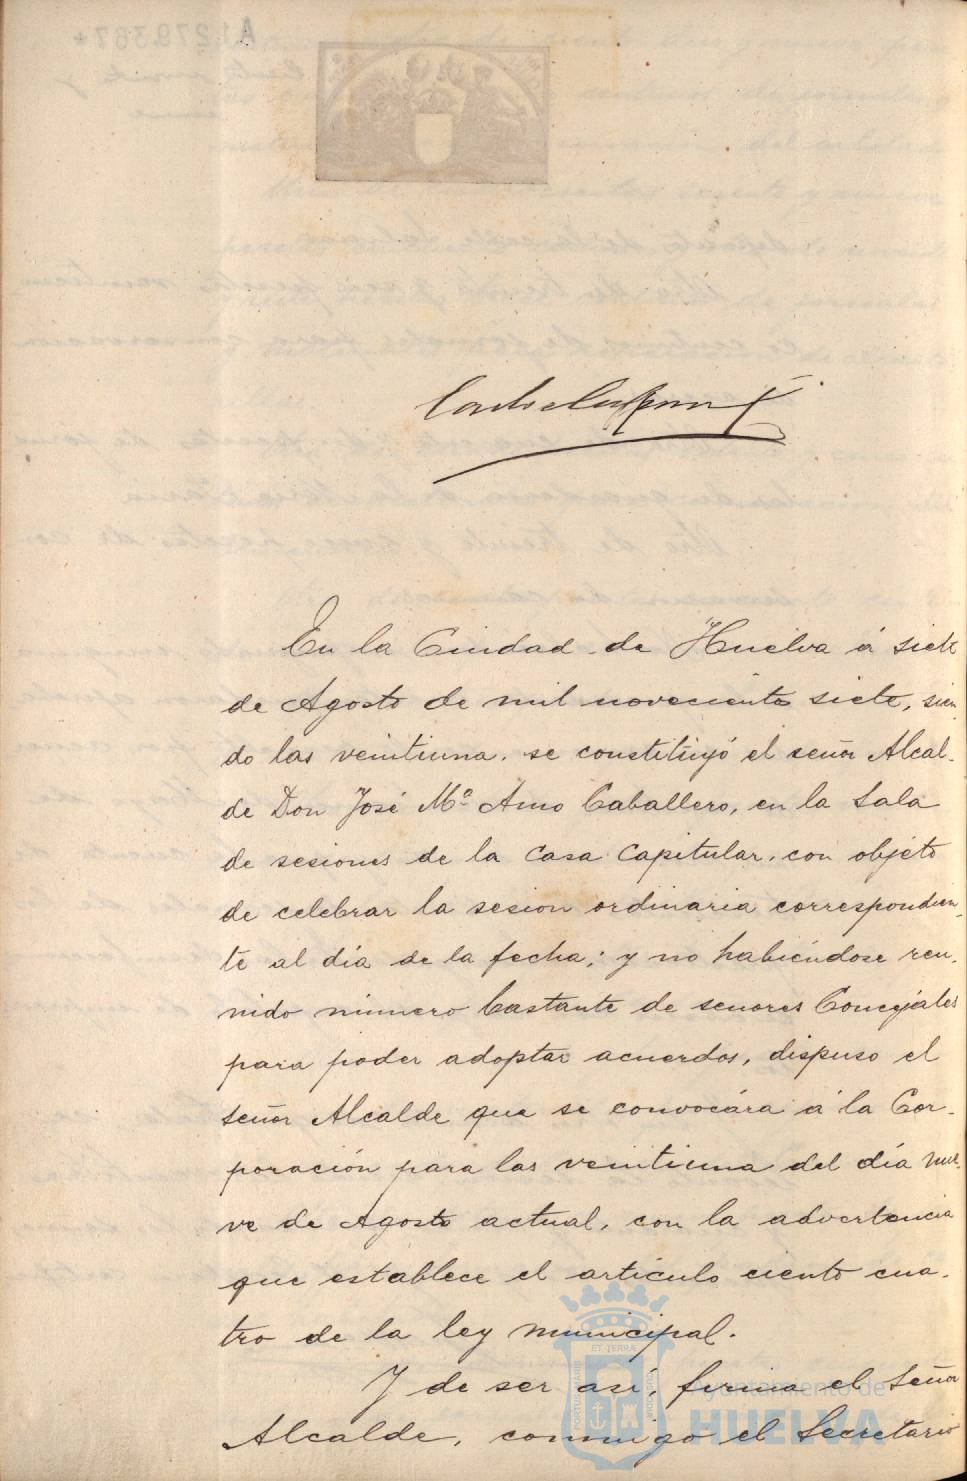 En la Ciudad de Huelva á siete
de Agosto de mil novecientos siete, sien-
do las veintiuna, se constituyó el señor Alcal-
de Don José Mª Amo Caballero, en la Sala
de sesiones de la Casa Capitular, con objeto
de celebrar la sesion ordinaria correspondien-
te al día de la fecha; y no habiéndose reu-
nido número bastante de señores Concejales
para poder adoptar acuerdos, dispuso el
señor Alcalde que se convocára á la Cor-
poración para las veintiuna del día nue-
ve de Agosto actual, con la advertencia
que establece el artículo ciento cua-
tro de la ley municipal.
Y de ser así, firma el Señor
Alcalde, conmigo el Secretario
Ayuntamiento de
HUELVA